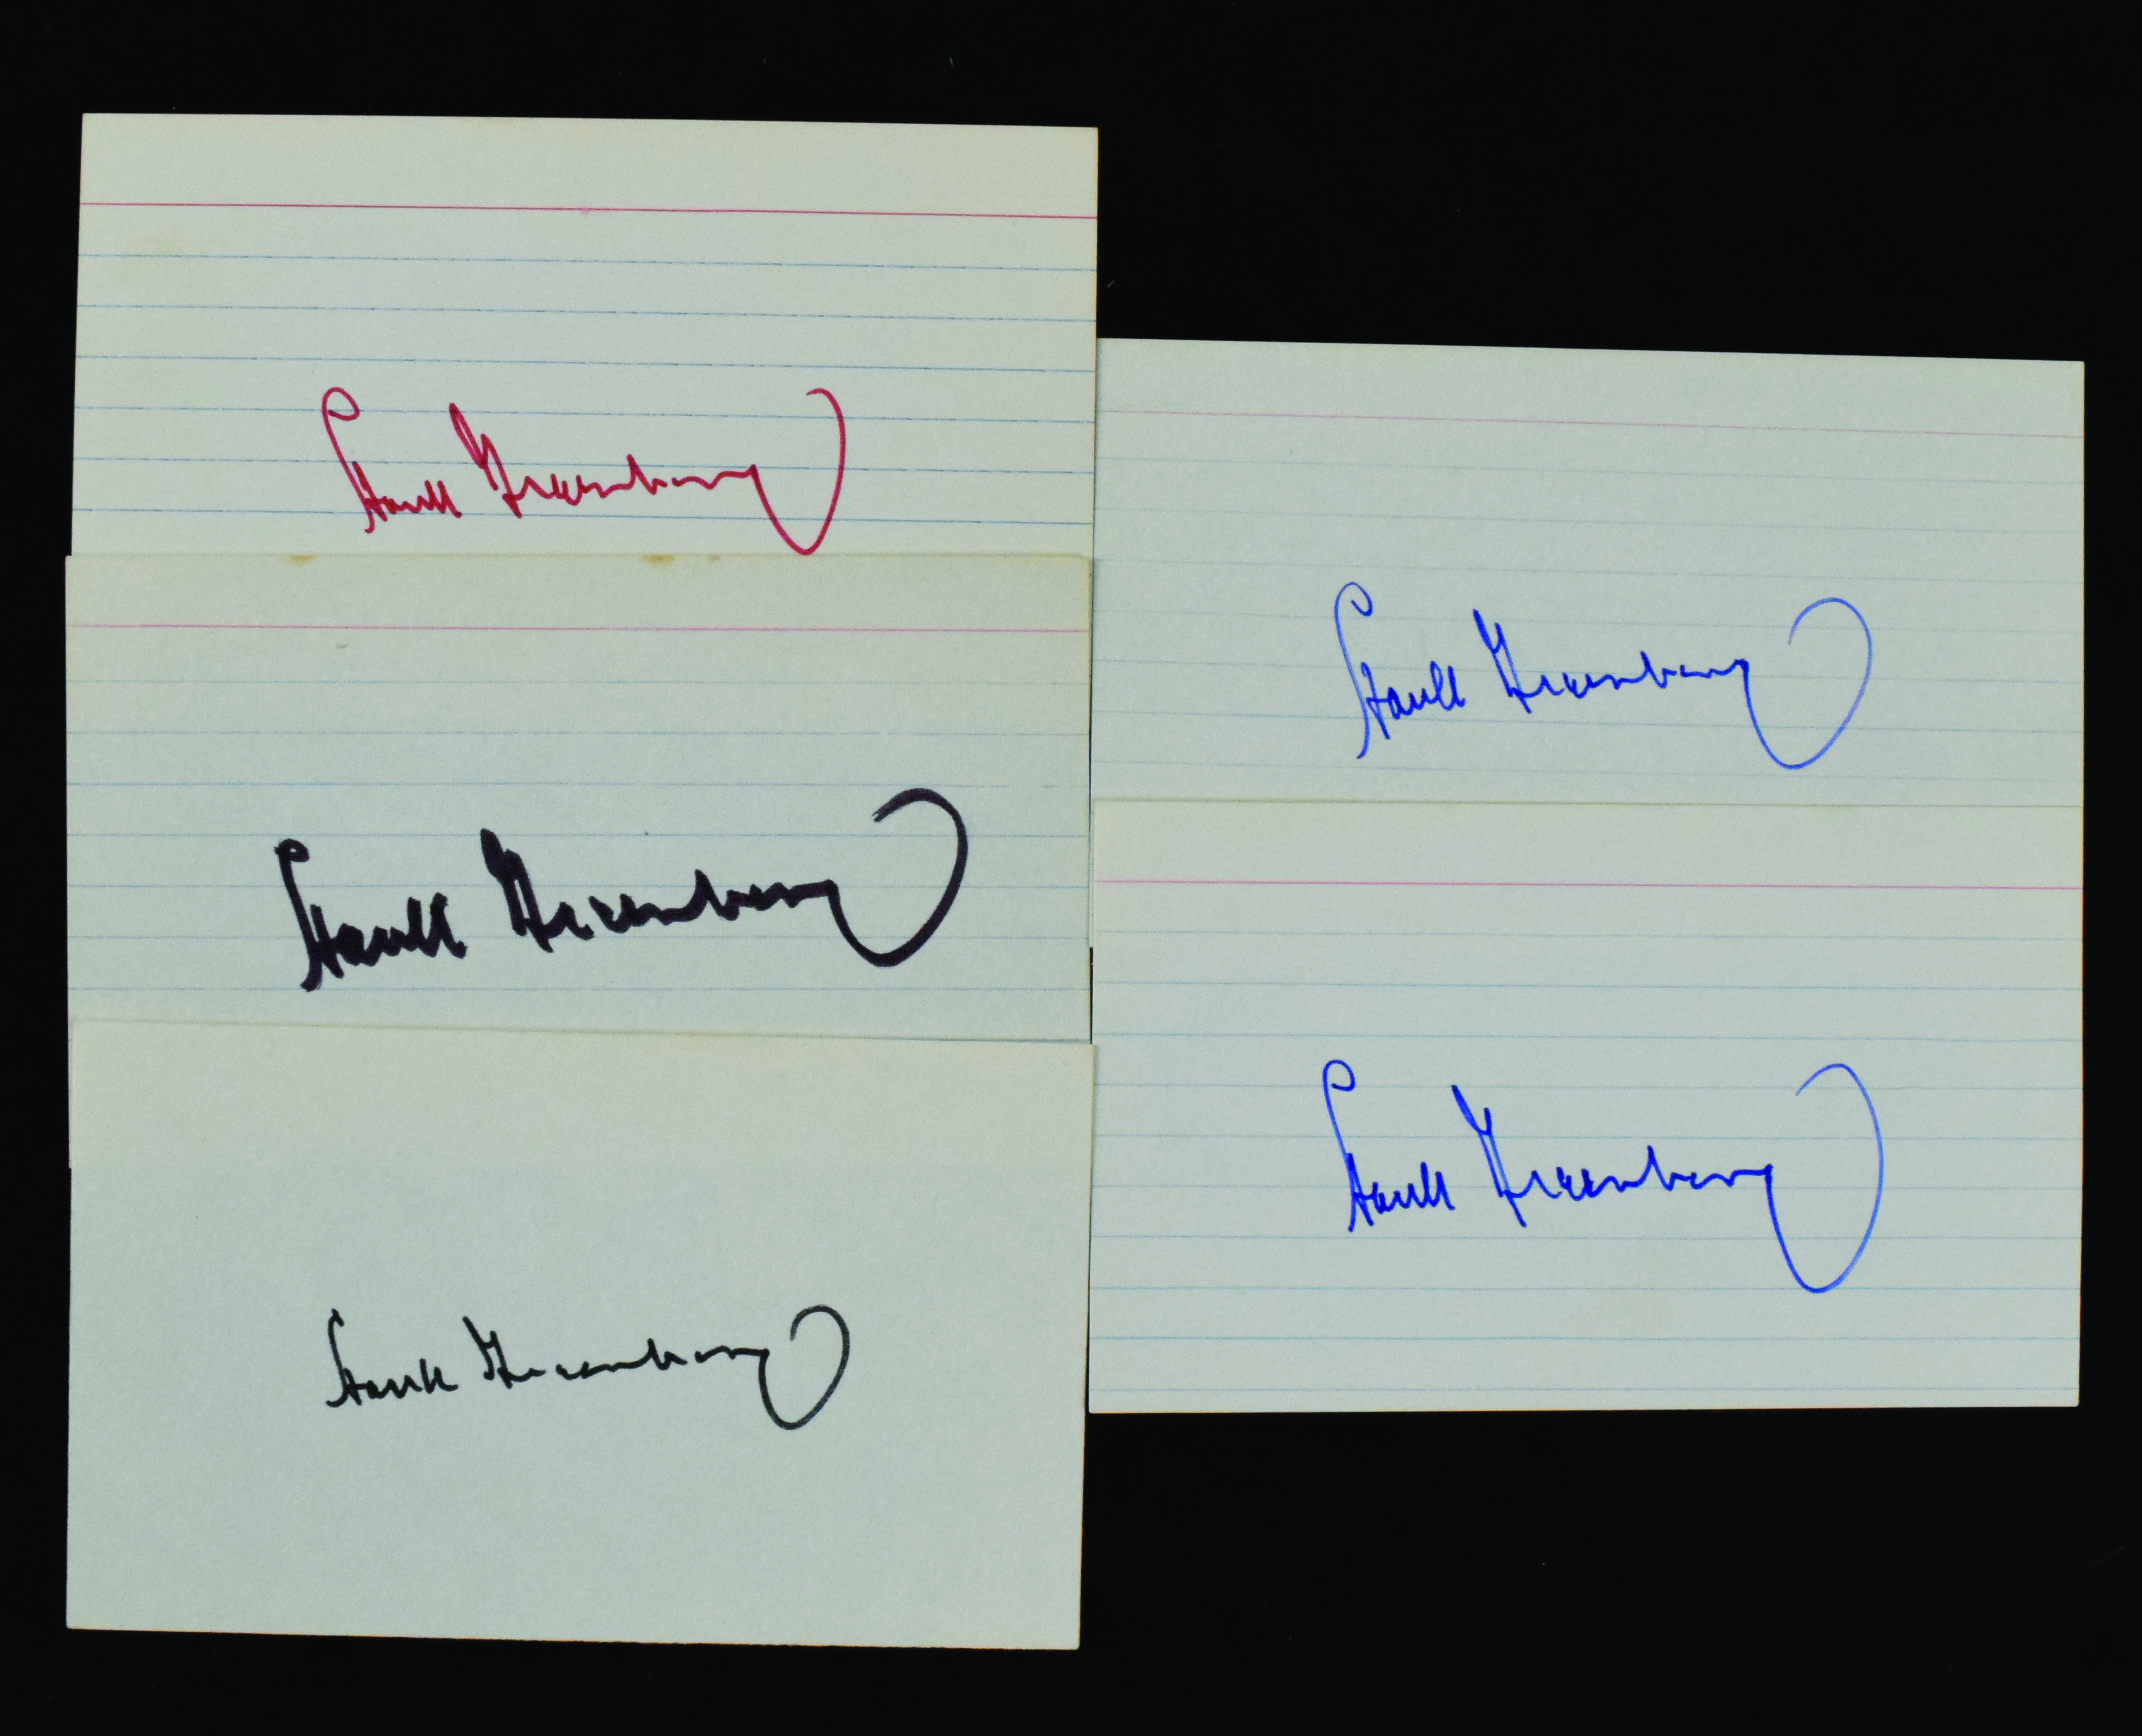 Hank Greenberg
Hank Greenberg
Hank Greenberg
Hank Greenberg
Hank Greenberg